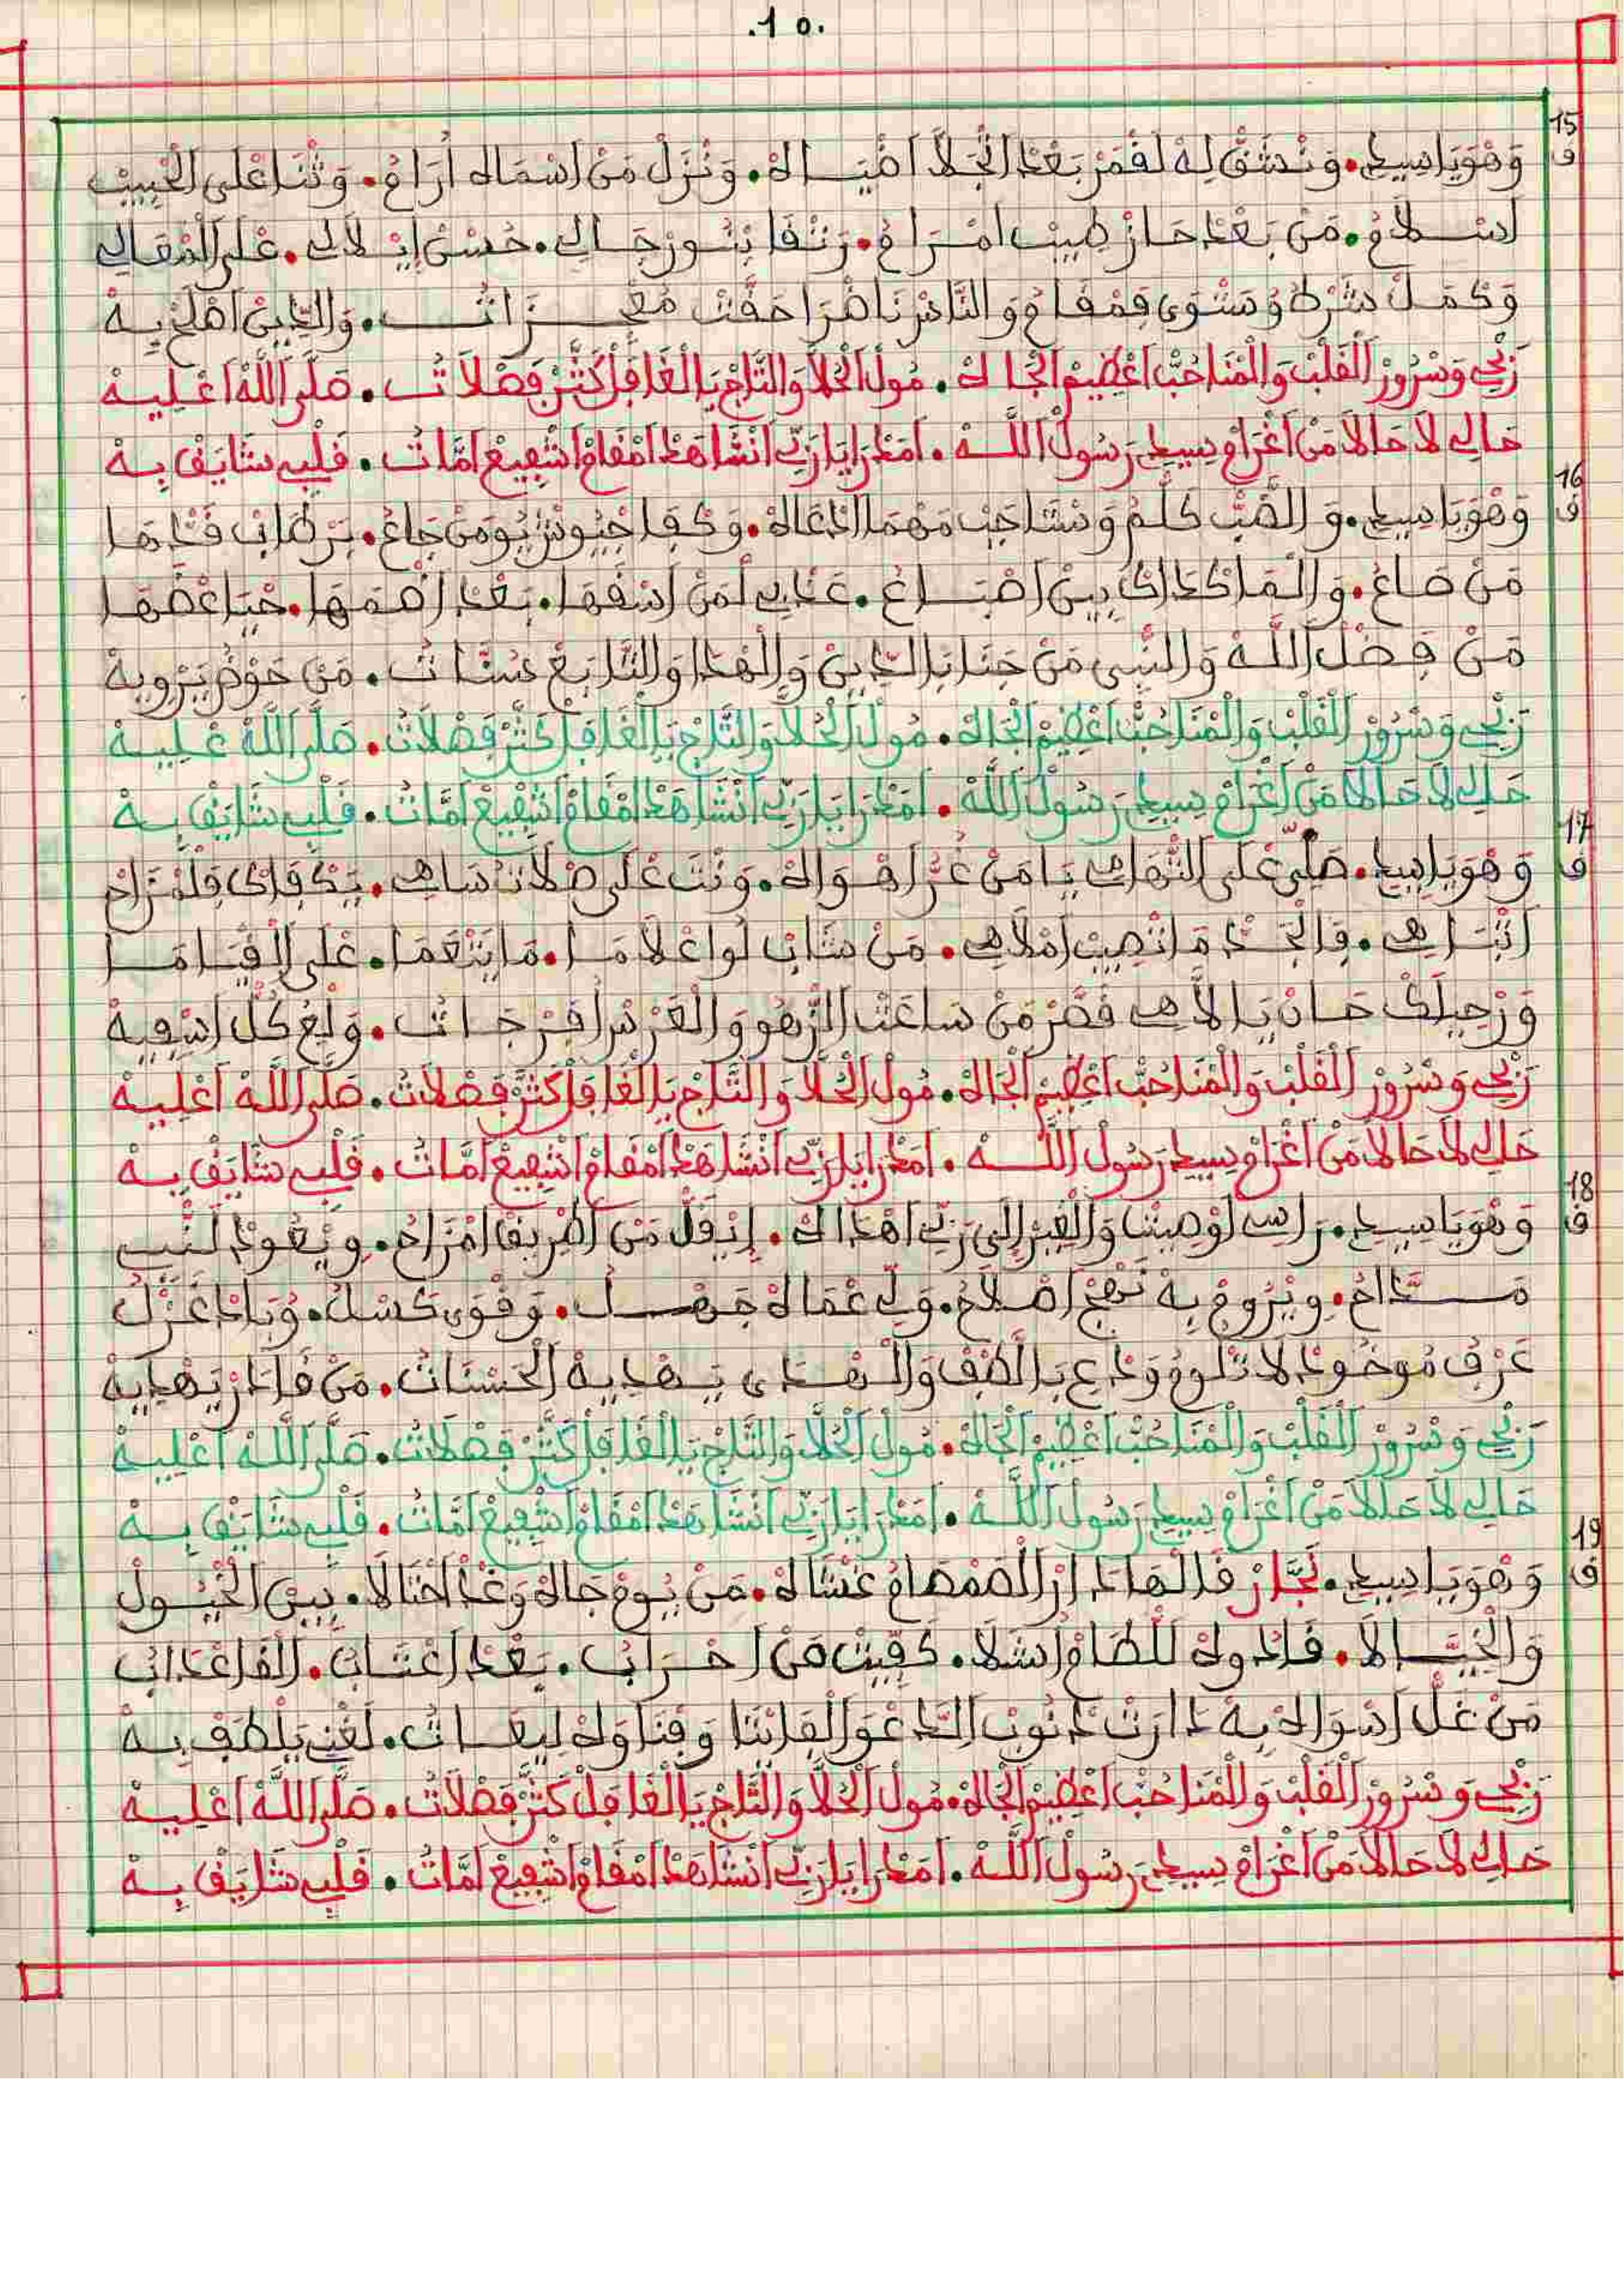 .10.
15
ف
وَهْوَ يَا سِيدِي • وَنْشَقّْ لِهْ لَقْمَرْ بَعْدْ انْجَلاَّ اضْيَاهْ • وَنْزَلْ مَنْ اسْمَاهْ أُرَامْ • وَثْنَا عْلَى الْحْبِيبْ
اسْلَامُ • مَنْ بَعْدْ حَازْ طِيبْ امْرَامُ • رَتْقَا بْنُورْ جَالِي • حُسْنْ إيْلَالِي • عْلَى الْمْقَالِي
وَكْمَلْ شَرْطُ وُمَسْوَى فِمْقَامُ وَالنَّاسْ نَاضْرَا حَقَّتْ مُعْجِزَاتُ • وَالدِّينْ اصْلَحْ بِهْ
رَبْحِي وَسْرُورْ الْقَلْبْ وَالْمْنَا حُبّْ اعْظِيمْ الْجَاهْ • مُولْ الْحُلاَّ وَالتَّاجْ يَا الْغَافَلْ كَثَّرْ فَصْلَاتُ • صَلَّى اللَّهْ اعْلِيهْ
حَالِي لَا حَالَا مَنْ اغْرَامْ سِيدِي رَسُولْ اللَّهْ • امْدْرَا يَا رَبِّي انْشَاهَدْ امْقَامْ اشْفِيعْ امَّاتُ • قَلْبِي شَايَقْ بِهْ
16
ف
وَهْوَ يَا سِيدِي • وَالضَّبّْ كَلْمُ وَسْتَاجَبْ مَهْمَا ادْعَاهْ • وَكْفَا جْيُوشْ يُومَنْ جَاعُ • بَرْطَابْ قَدْهَا
مَنْ صَاعُ • وَالْمَا كْدَاكْ بِينْ اصْبَاعُ • عَدْبِي لْمَنْ اسْقَهَا • بَعْدْ اضْمَهَا • حْيَا عْضَهَا
مَنْ فَضْلْ اللَّهْ وَالنّْبِي مَنْ جَنَا بَالدِّينْ وَالْهْدَا وَالتَّابَعْ سُنَّاتُ • مَنْ حَوْضُ يَرْوِيهْ
رَبْحِي وَسْرُورْ الْقَلْبْ وَالْمْنَا حُبّْ اعْظِيمْ الْجَاهْ • مُولْ الْحُلاَّ وَالتَّاجْ يَا الْغَافَلْ كَثَّرْ فَصْلَاتُ • صَلَّى اللَّهْ عْلِيهْ
حَالِي لَا حَالَا مَنْ اغْرَامْ سِيدِي رَسُولْ اللَّهْ • امْدْرَا يَا رَبِّي انْشَاهَدْ امْقَامْ اشْفِيعْ امَّاتُ • قَلْبِي شَايَقْ بِهْ
17
ف
وَهْوَ يَا سِيدِي • صَلِّي عْلَى التّْهَامِي يَا مَنْ غُرّْ اهْوَاهْ • وَنْتَ عْلَى صْلَاتُ سَاهِي • يَكْفَاكْ فِلْمْزَاحْ
اتْبَاهِي • فِالْجَدّْ مَا تْصِيبْ امْلَاهِي • مَنْ شَابْ لُوا عْلَامَا • مَا يَنْعَمَا • عْلَى الْاقَامَا
وَرْحِيلَكْ حَانْ يَا الْاهِي قَصَّرْ مَنْ سَاعَتْ الزّْهُو وَالْعَرْسْ اُفَرْجَاتُ • وَلَغُ كُلّْ اسْفِيهْ
رَبْحِي وَسْرُورْ الْقَلْبْ وَالْمْنَا حُبّْ اعْظِيمْ الْجَاهْ • مُولْ الْحُلاَّ وَالتَّاجْ يَا الْغَافَلْ كَثَّرْ فَصْلَاتُ • صَلَّى اللَّهْ اعْلِيهْ
حَالِي لَا حَالَا مَنْ اغْرَامْ سِيدِي رَسُولْ اللَّهْ • امْدْرَا يَا رَبِّي انْشَاهَدْ امْقَامْ اشْفِيعْ امَّاتُ • قَلْبِي شَايَقْ بِهْ
18
ف
وَهْوَ يَا سِيدِي • رَاسِي اوْصِيتْنَا وَالْغِيرْ اِلَى رَبِّي اهْدَاكْ • اِيْقَلّْ مَنْ اطْرِيقْ امْزَاحُ • وِيْعُودْ لَنّْبِي
مَدَّاحُ • وِيْرُوحْ بِهْ نَهْجْ اصْلَاحُ • وَلِّي عْمَاهْ جَهْلُ • وَقْوَى كَسْلُ • وُبَادْ غَزْلُ
عَرْفُ مُوجُودْ لَا تْلُومُ وَدْعِ بَالْطْفْ وَالْهْدَى يَهْدِيهْ الْحَسْنَاتُ • مَنْ قَادَرْ يَهْدِيهْ
رَبْحِي وَسْرُورْ الْقَلْبْ وَالْمْنَا حُبّْ اعْظِيمْ الْجَاهْ • مُولْ الْحُلاَّ وَالتَّاجْ يَا الْغَافَلْ كَثَّرْ فَصْلَاتُ • صَلَّى اللَّهْ اعْلِيهْ
حَالِي لَا حَالَا مَنْ اغْرَامْ سِيدِي رَسُولْ اللَّهْ • امْدْرَا يَا رَبِّي انْشَاهَدْ امْقَامْ اشْفِيعْ امَّاتُ • قَلْبِي شَايَقْ بِهْ
19
ف
وَهْوَ يَا سِيدِي • نَجَّارْ قَالْهَا دَارْ الصَّمْصَامُ غَشَّاهْ • مَنْ يُومْ جَاهْ وَغْدْ احْتَالَا • بِينْ الْخْيُولْ
وَالْخْيَّالَا • قَادُوهْ لَلطَّامْ اشْلَا • كَفِّيتْ مَنْ احْرَابُ • بَعْدْ اعْتَابُ • الْقَا عْدَابُ
مَنْ غَلّْ اسْوَاهْ بِهْ دَارَتْ دْنُوبْ الدَّعْوَ الْفَايْتَا وَفْنَاوَهْ لِيعَاتُ • لَغْنِي يَلْطَفْ بِهْ
رَبْحِي وَسْرُورْ الْقَلْبْ وَالْمْنَا حُبّْ اعْظِيمْ الْجَاهْ • مُولْ الْحُلاَّ وَالتَّاجْ يَا الْغَافَلْ كَثَّرْ فَصْلَاتُ • صَلَّى اللَّهْ اعْلِيهْ
حَالِي لَا حَالَا مَنْ اغْرَامْ سِيدِي رَسُولْ اللَّهْ • امْدْرَا يَا رَبِّي انْشَاهَدْ امْقَامْ اشْفِيعْ امَّاتُ • قَلْبِي شَايَقْ بِهْ